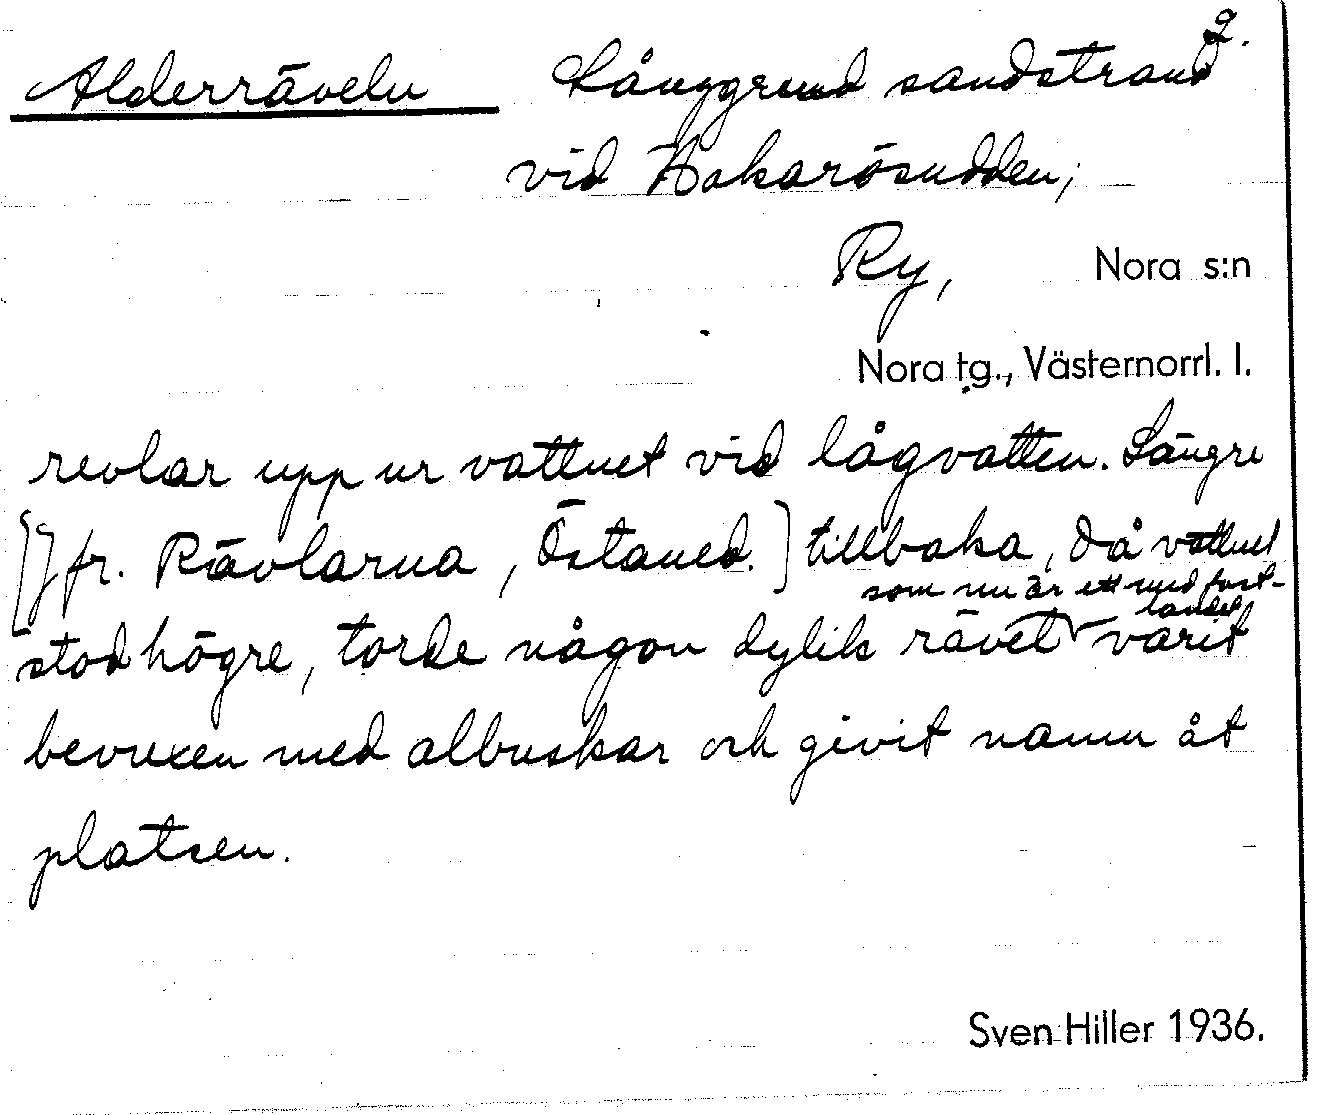 2.
Alderräveln Långgrund sandstrand
vid Hakarösudden;
Ry, Nora s:n
Nora tg., Västernorrl. l.
revlar upp ur vattnet vid lågvatten. Längre
[Jfr. Rävlarna, Östaned.] tillbaka, då vattnet
som nu är ett med fast-
landet
stod högre, torde någon dylik rävel varit
bevuxen med albuskar och givit namn åt
platsen.
Sven Hiller 1936.